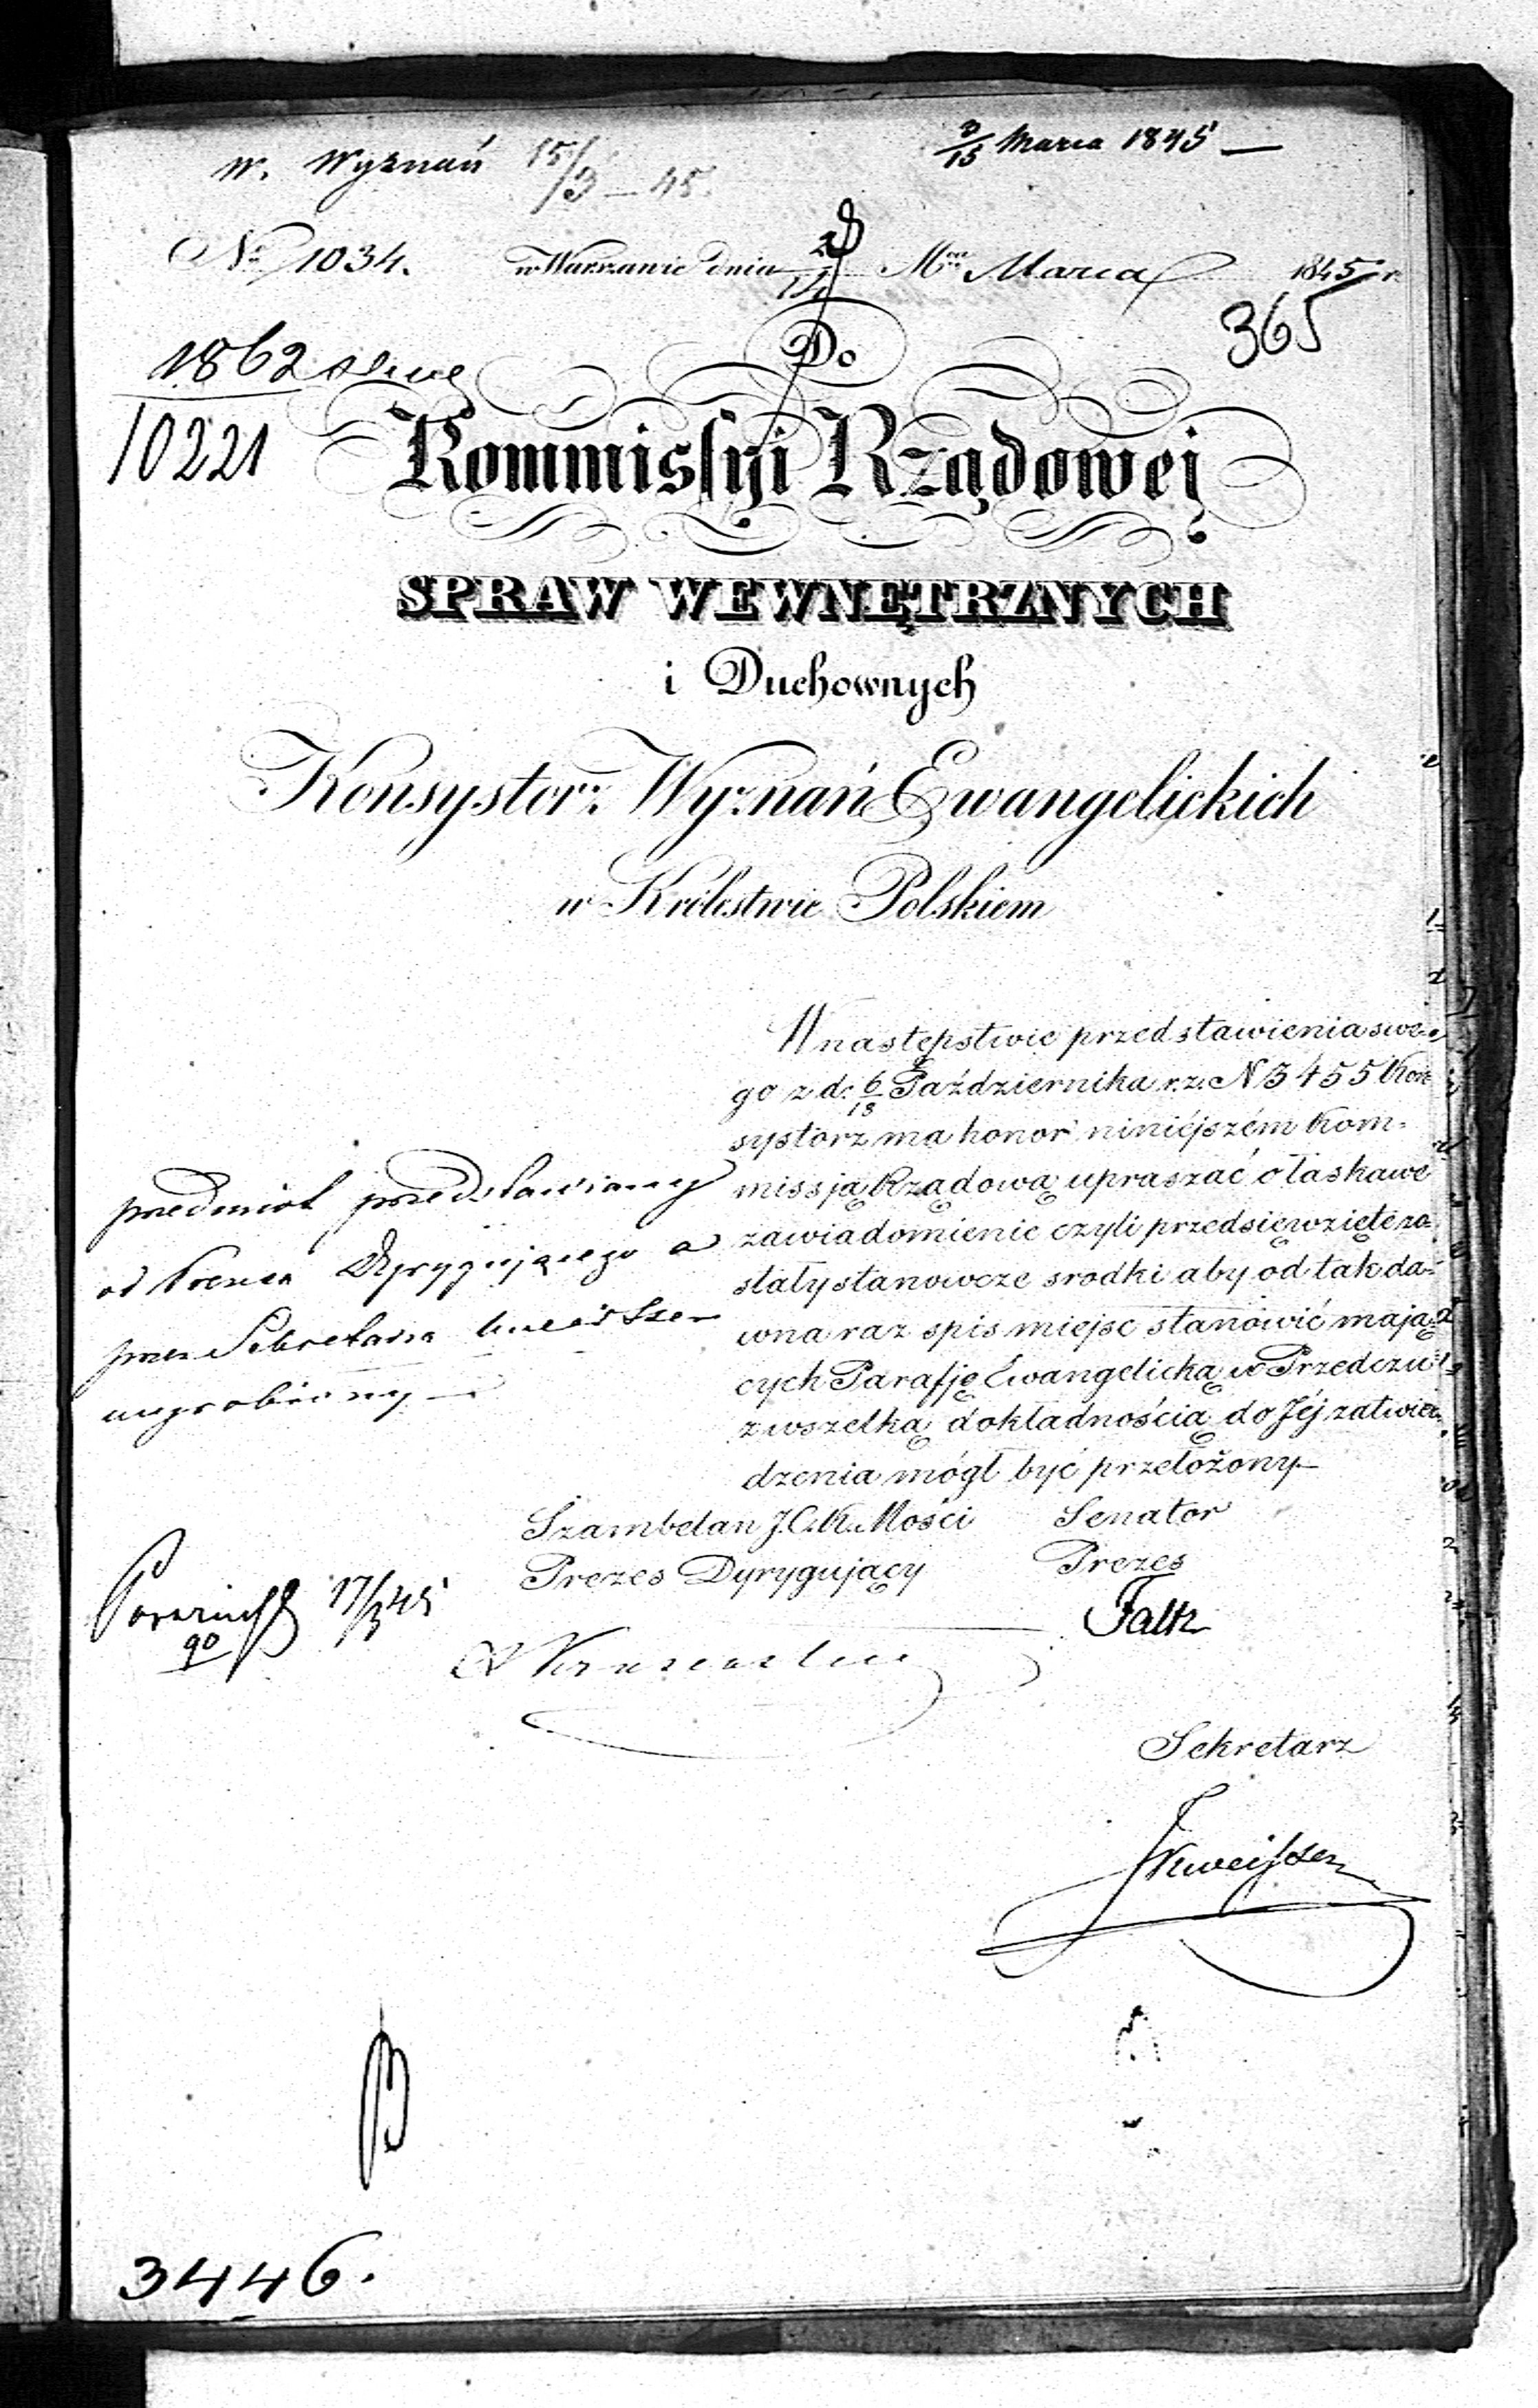 W. Wyznań 15/3 – 45.
3/15 Marca 1845 —
No 1034. w Warszawie dnia 2/14 Mca Marca 1845 r.
365
1862
10221
Do
Kommissyi Rządowej
SPRAW WEWNĘTRZNYCH
i Duchownych
Konsystorz Wyznań Ewangelickich
w Królestwie Polskiem
W następstwie przedstawienia swe-
go z d: 6/18 Października r.z. N 3455 Kon
systorz ma honor niniéjszém Kom-
missją Rządową upraszać o łaskawe
zawiadomienie czyli przedsięwzięte zo-
stały stanowcze srodki aby od tak da-
wna raz spis miejsc stanowić mają-
cych Parafję Ewangelicką w Przedczu
z wszelką dokładnością do Jéj zatwier-
dzenia mógł być przełożony—
przedmiot przedstawiony
od Prezesa Dyrygującego a
przez Sekretarza Kweissera
wygrobiony —
Szambelan J.C.K. Mości Senator
Prezes Dyrygujący Prezes
Faltz
17/3 45
90
Sekretarz
Kweisser
3446.